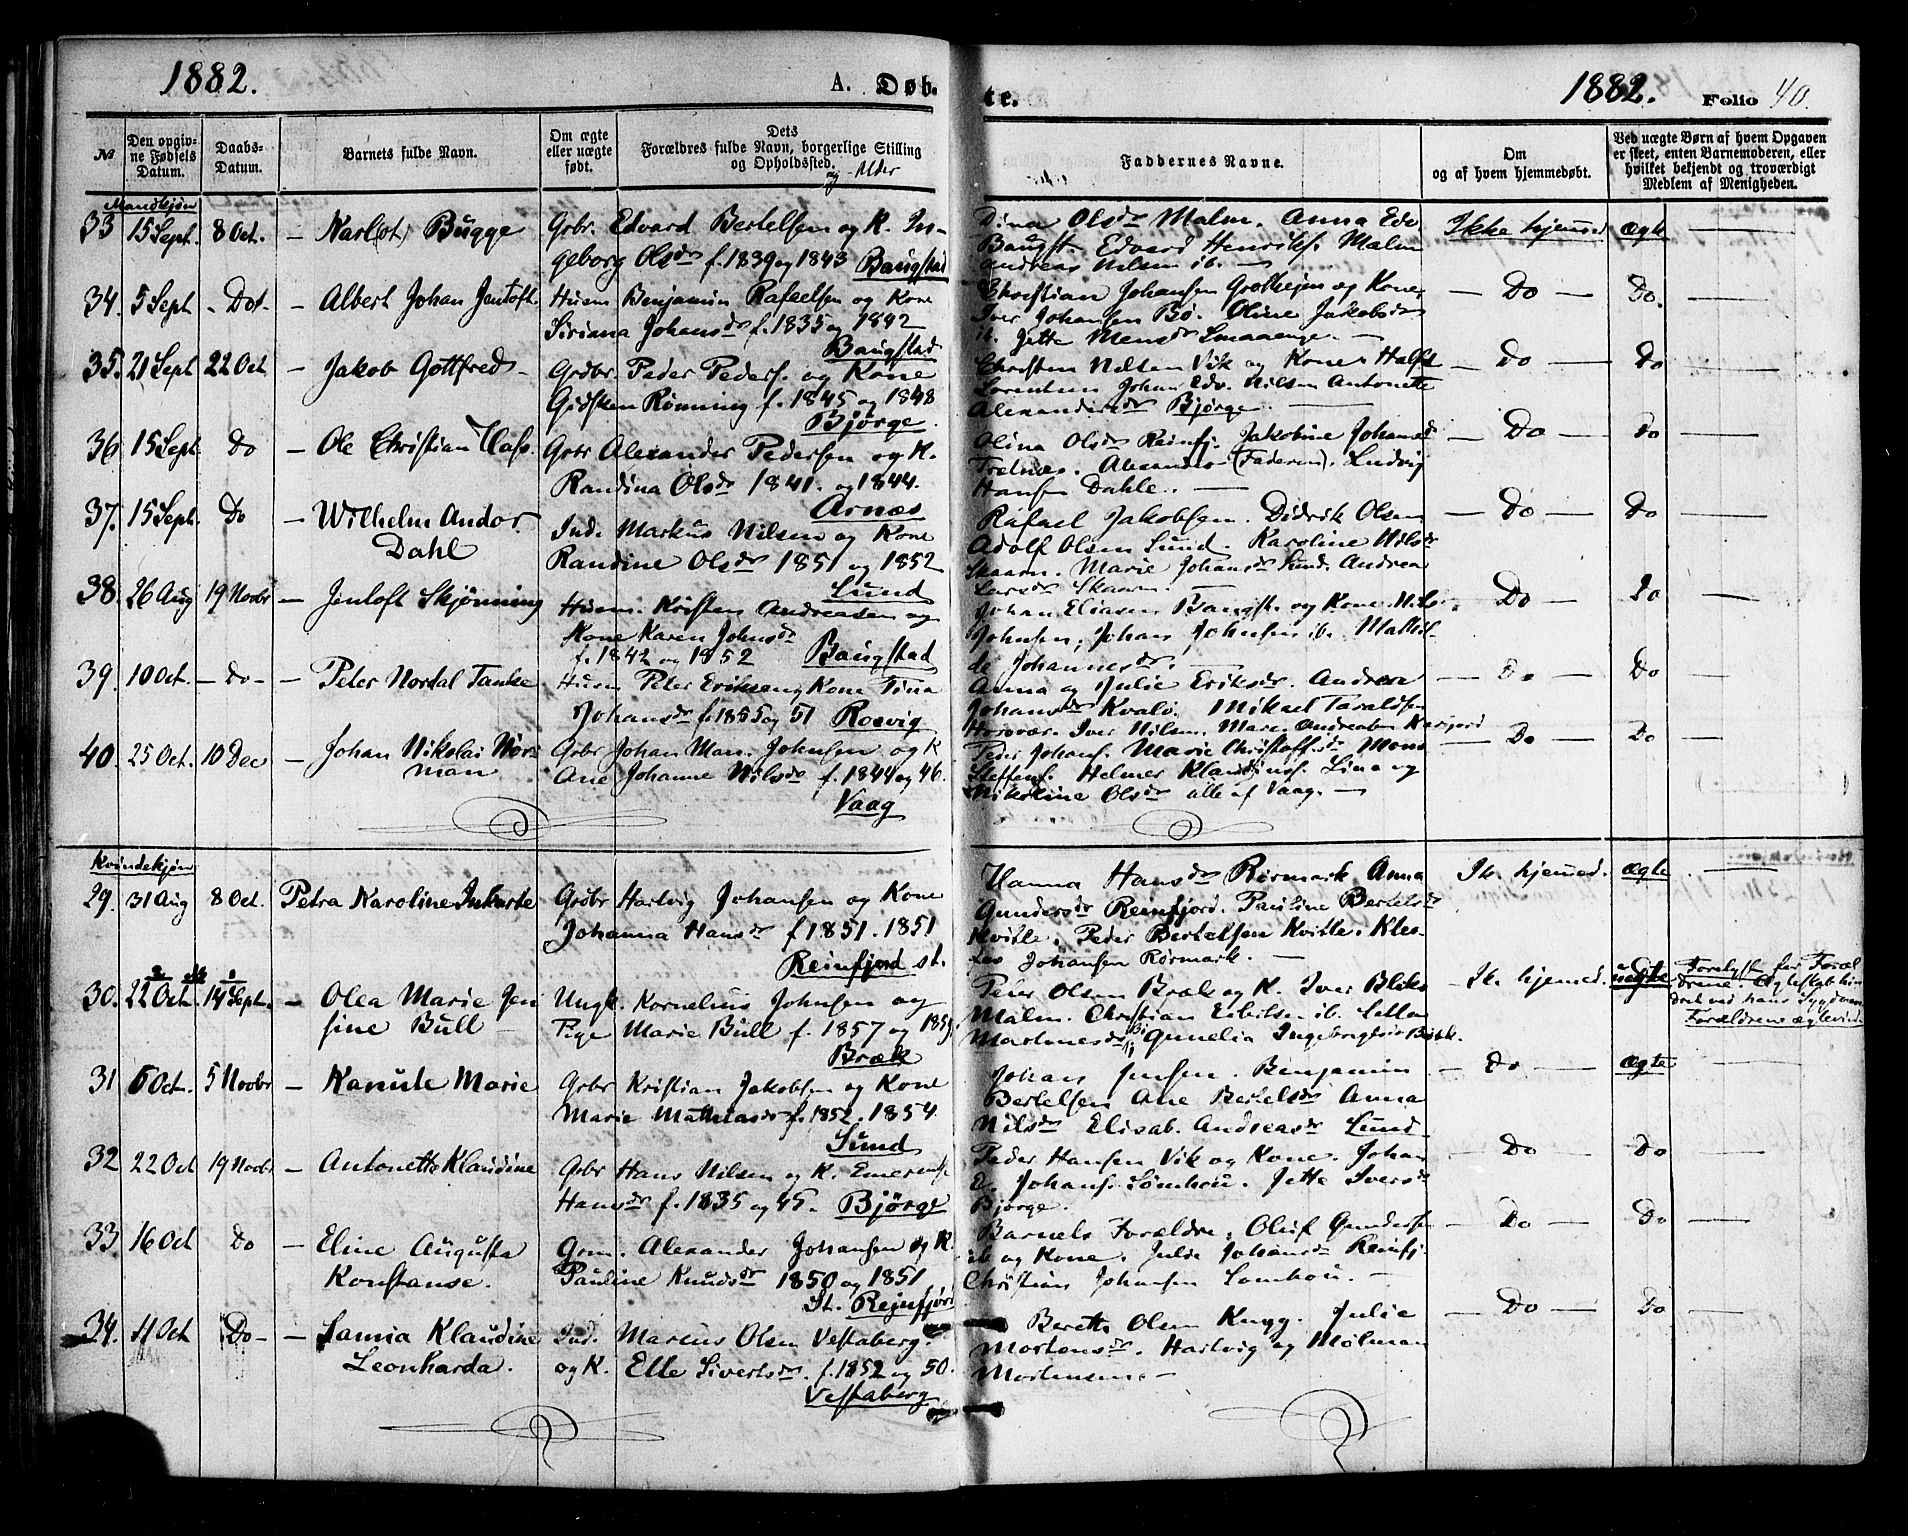 1882.
A. Døb-
te.
1882.
Folio 40.
№
Den opgiv-
ne Fødsels
Datum.
Daabs-
Datum.
Barnets fulde Navn.
Om ægte
eller uægte
født.
Dets
Forældres fulde Navn, borgerlige Stilling
og Opholdssted.
og Alder
Faddernes Navne.
Om
og af hvem hjemmedøbt.
Ved uægte Børn af hvem Opgaven
er skeet, enten Barnemoderen, eller
hvilket bekjendt og troværdigt
Medlem af Menigheden.
Mandkjøn
33 15 Sept. 8 Oct. – Karl (ot) Bugge
Grbr. Edvard Bertelsen og K. In-
geborg Olsdr f. 1839 og 1843 Baugstad
Dina Olsdr Malm. Anna Edv.
Baugst. Edvard Henriks. Malm
Andreas Nilsen ib. —
Ikke hjemmed ægte
34. 5 Sept – Do – – Albert Johan Jentoft.
Husm Benjamin Rafaelsen og Kone
Siriana Johansdr f. 1835 og 1842
Baugstad
Christian Johansen og Kone
Iver Johansen Bø. Oline Jakobsdr
ib. Jette Monsdr Smaaenge. —
— Do — Do.
35. 21 Sept 22 Oct – Jakob Gottfred –
Grdbr. Peder Peders. og Kone
Gidsken Rønning f. 1845 og 1848
Bjørge
Christen Nilsen Vik og Kone. Halfd
Lorentsen Johan Edv. Nilsen Antonette
Alexandersdr Bjørge. —
— Do — Do
36 15 Sept Do – Ole Christian
Grbr Alexander Pedersen og K.
Randina Olsdr 1841. og 1844.
Arnæs
Olina Olsdr Reinfj. Jakobine Johansdr
Trelnæs. Alexander (Faderen). Ludvig
Hansen Dahle. —
— Do — Do
37. 15 Sept. Do – Wilhelm Andor
Dahl
Ind. Markus Nilsen og Kone
Randine Olsdr 1851 og 1852
Lund
Rafael Jakobsen. Didrik Olsen
Adolf Olsen Lund. Karoline Nilsdr
Skaarn. Marie Johansdr Lund. Andrea
Larsdr Skaarn. —
— Do — Do
38. 26 Aug 19 Novbr – Jentoft Skjønning
Husm. Kristen Andreasen og
Kone Karen Johnsdr
f. 1842 og 1852 Baugstad
Johan Eliasen Baugst. og Kone. Nils
Johnsen, Johan Johnsen ib. Mathil-
de Johannesdr. —
— Do — Do
39. 10 Oct. – Do – – Peter Nordal Tanke
Husm Peter Eriksen og Kone Tina
Johansdr f. 1855 og 51 Rosvig
Anna og Julie Eriksdr. Andrea
Johansdr Kvalø. Mikael Taraldsen
Horsvær. Iver Nilsen. Mare. Andreasen
— Do — Do
40. 25 Oct. 10 Dec – Johan Nikolai Nor-
man
Grbr Johan Man. Johnsen og K
Ane Johanne Nilsdr f. 1844 og 46.
Vaag
Peder Johans. Marie Christoffsdr Mons
Steffens. Helmer Klaudius. Lina og
Nikoline Olsdr alle af Vaag. —
— Do — Do
Kvindekjøn
29. 31 Aug 8 Oct. Petra Karoline
Grdbr Hartvig Johansen og Kone
Johanna Hansdr f 1851. 1851
Reinfjord st.
Hanna Hansdr Rørmark Anna
Gundersdr Reinfjord. Pauline Bertelsdr
Kvitle. Peder Bertelsen Kvitle.
Johansen Rørmark. —
Ik. hjemmed. ægte
30. 22 Oct. 14 Sept. – Olea Marie Jen
sine Bull
Ungk. Kornelius Johnsen og
Pige Marie Bull f. 1857 og
Bræk
Peter Olsen Bræk og K. Iver
Malm. Christian ib.
Martinesdr Gunelia
— Ik. hjemmed. uægte
Forelyst for Foræl
drene.
Forældrene
31 6 Oct. 5 Novbr – Kanute Marie
Grbr Kristian Jakobsen og Kone
Marie Mathiasdr f. 1852. 1854.
Lund
Johan Jensen. Benjamin
Bertelsen Ane Bertelsdr Anna
Nilsdr Elisab. Andreasdr Lund
Do — ægte
32 22 Oct 19 Novbr – Antonette Klaudine
Grbr Hans Nilsen og K. Emerense
Hansdr f. 1835 og 45. Bjørge
Peder Hansen Vik og Kone. Johan
E. Johans. Lømhou. Jette Iversdr
Bjørge.
— Do — Do
33 16 Oct Do – Eline Augusta
Konstanse.
Grm. Alexander Johansen og K.
Pauline Knudsdr 1850 og 1851
St. Reinfjord
Barnets Forældre, Oluf Gunders
ib og Kone. Julie Johansdr Reinfj
Christian Johansen Lomhou. —
— Do — Do
34. 11 Oct Do – – Lamia Klaudine
Leonharda.
Ind. Marcus Olsen Vestaberg.
og K. Elle Sivertsdr. f. 1852 og 50.
Vestaberg
Berette Olsen Knyg. Julie
Mortensdr. Hartvig og Mølman
Mortensen. —
— Do — Do